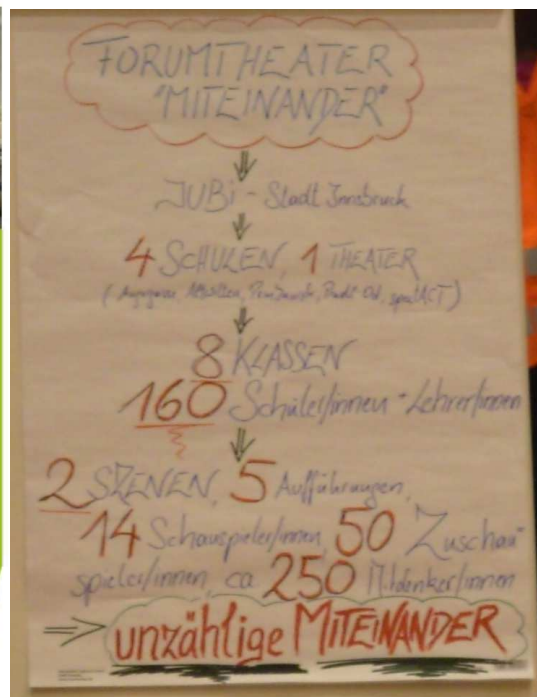 FORUMTHEATER
"MITEINANDER"
JUBi - Stadt Innsbruck
4 SCHULEN, 1 THEATER
8 KLASSEN
160 Schüler/innen + Lehrer/innen
2 SZENEN, 5 Aufführungen,
14 Schauspieler/innen, 50 Zuschau-
spieler/innen, ca 250 Mitdenker/innen
unzählige MITEINANDER